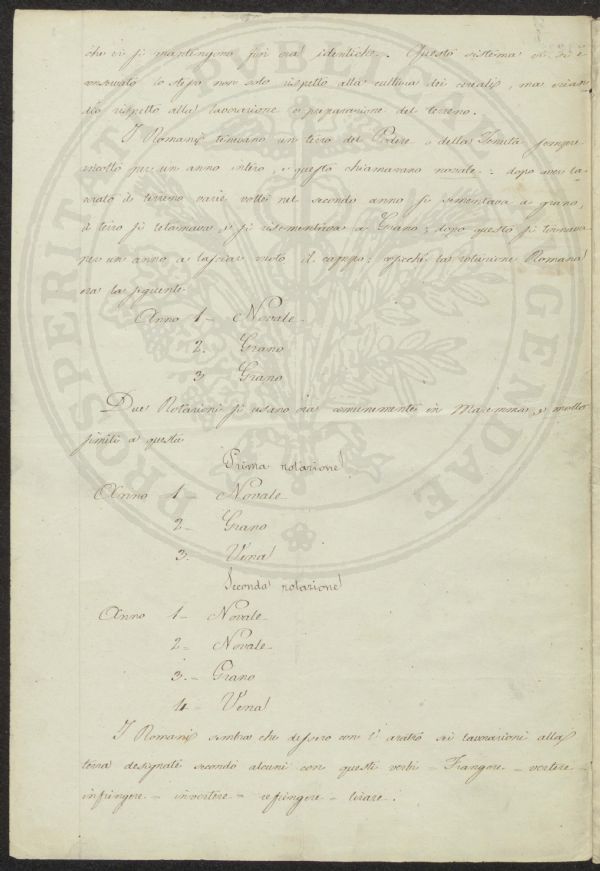 che vi si mantengono fin ora identiche. Questo sistema
conservato lo stesso non solo rispetto alla cultura dei cereali, ma
rispetto alla lavorazione e preparazione del terreno.
I Romani tenevano un terzo del Podere o della Tenuta sempre
per un anno intero, e questo chiamavano novale: dopo aver la-
vorato il terreno varie volte nel secondo anno si sementava a grano,
il terzo si e si risementava a Grano; dopo questo si tornava
per un anno a lasciar vuoto il campo: cosicchè la rotazione Romana
era la seguente
Anno 1 - Novale
2. Grano
3 Grano
Due Rotazioni si usano ora comunemente in Maremma, e molto
simili a questa
Prima rotazione
Anno 1 - Novale
2 - Grano
3. Vena
Seconda rotazione
Anno 1 - Novale
2 - Novale
3. - Grano
4 - Vena
I Romani sembra che dessero con l' aratro sei lavorazioni alla
terra designate secondo alcuni con questi verbi - Frangere - vertere -
infringere - invertere - refringere - lirare.
PROSPERITATI PUBLICAE AUGENDAE